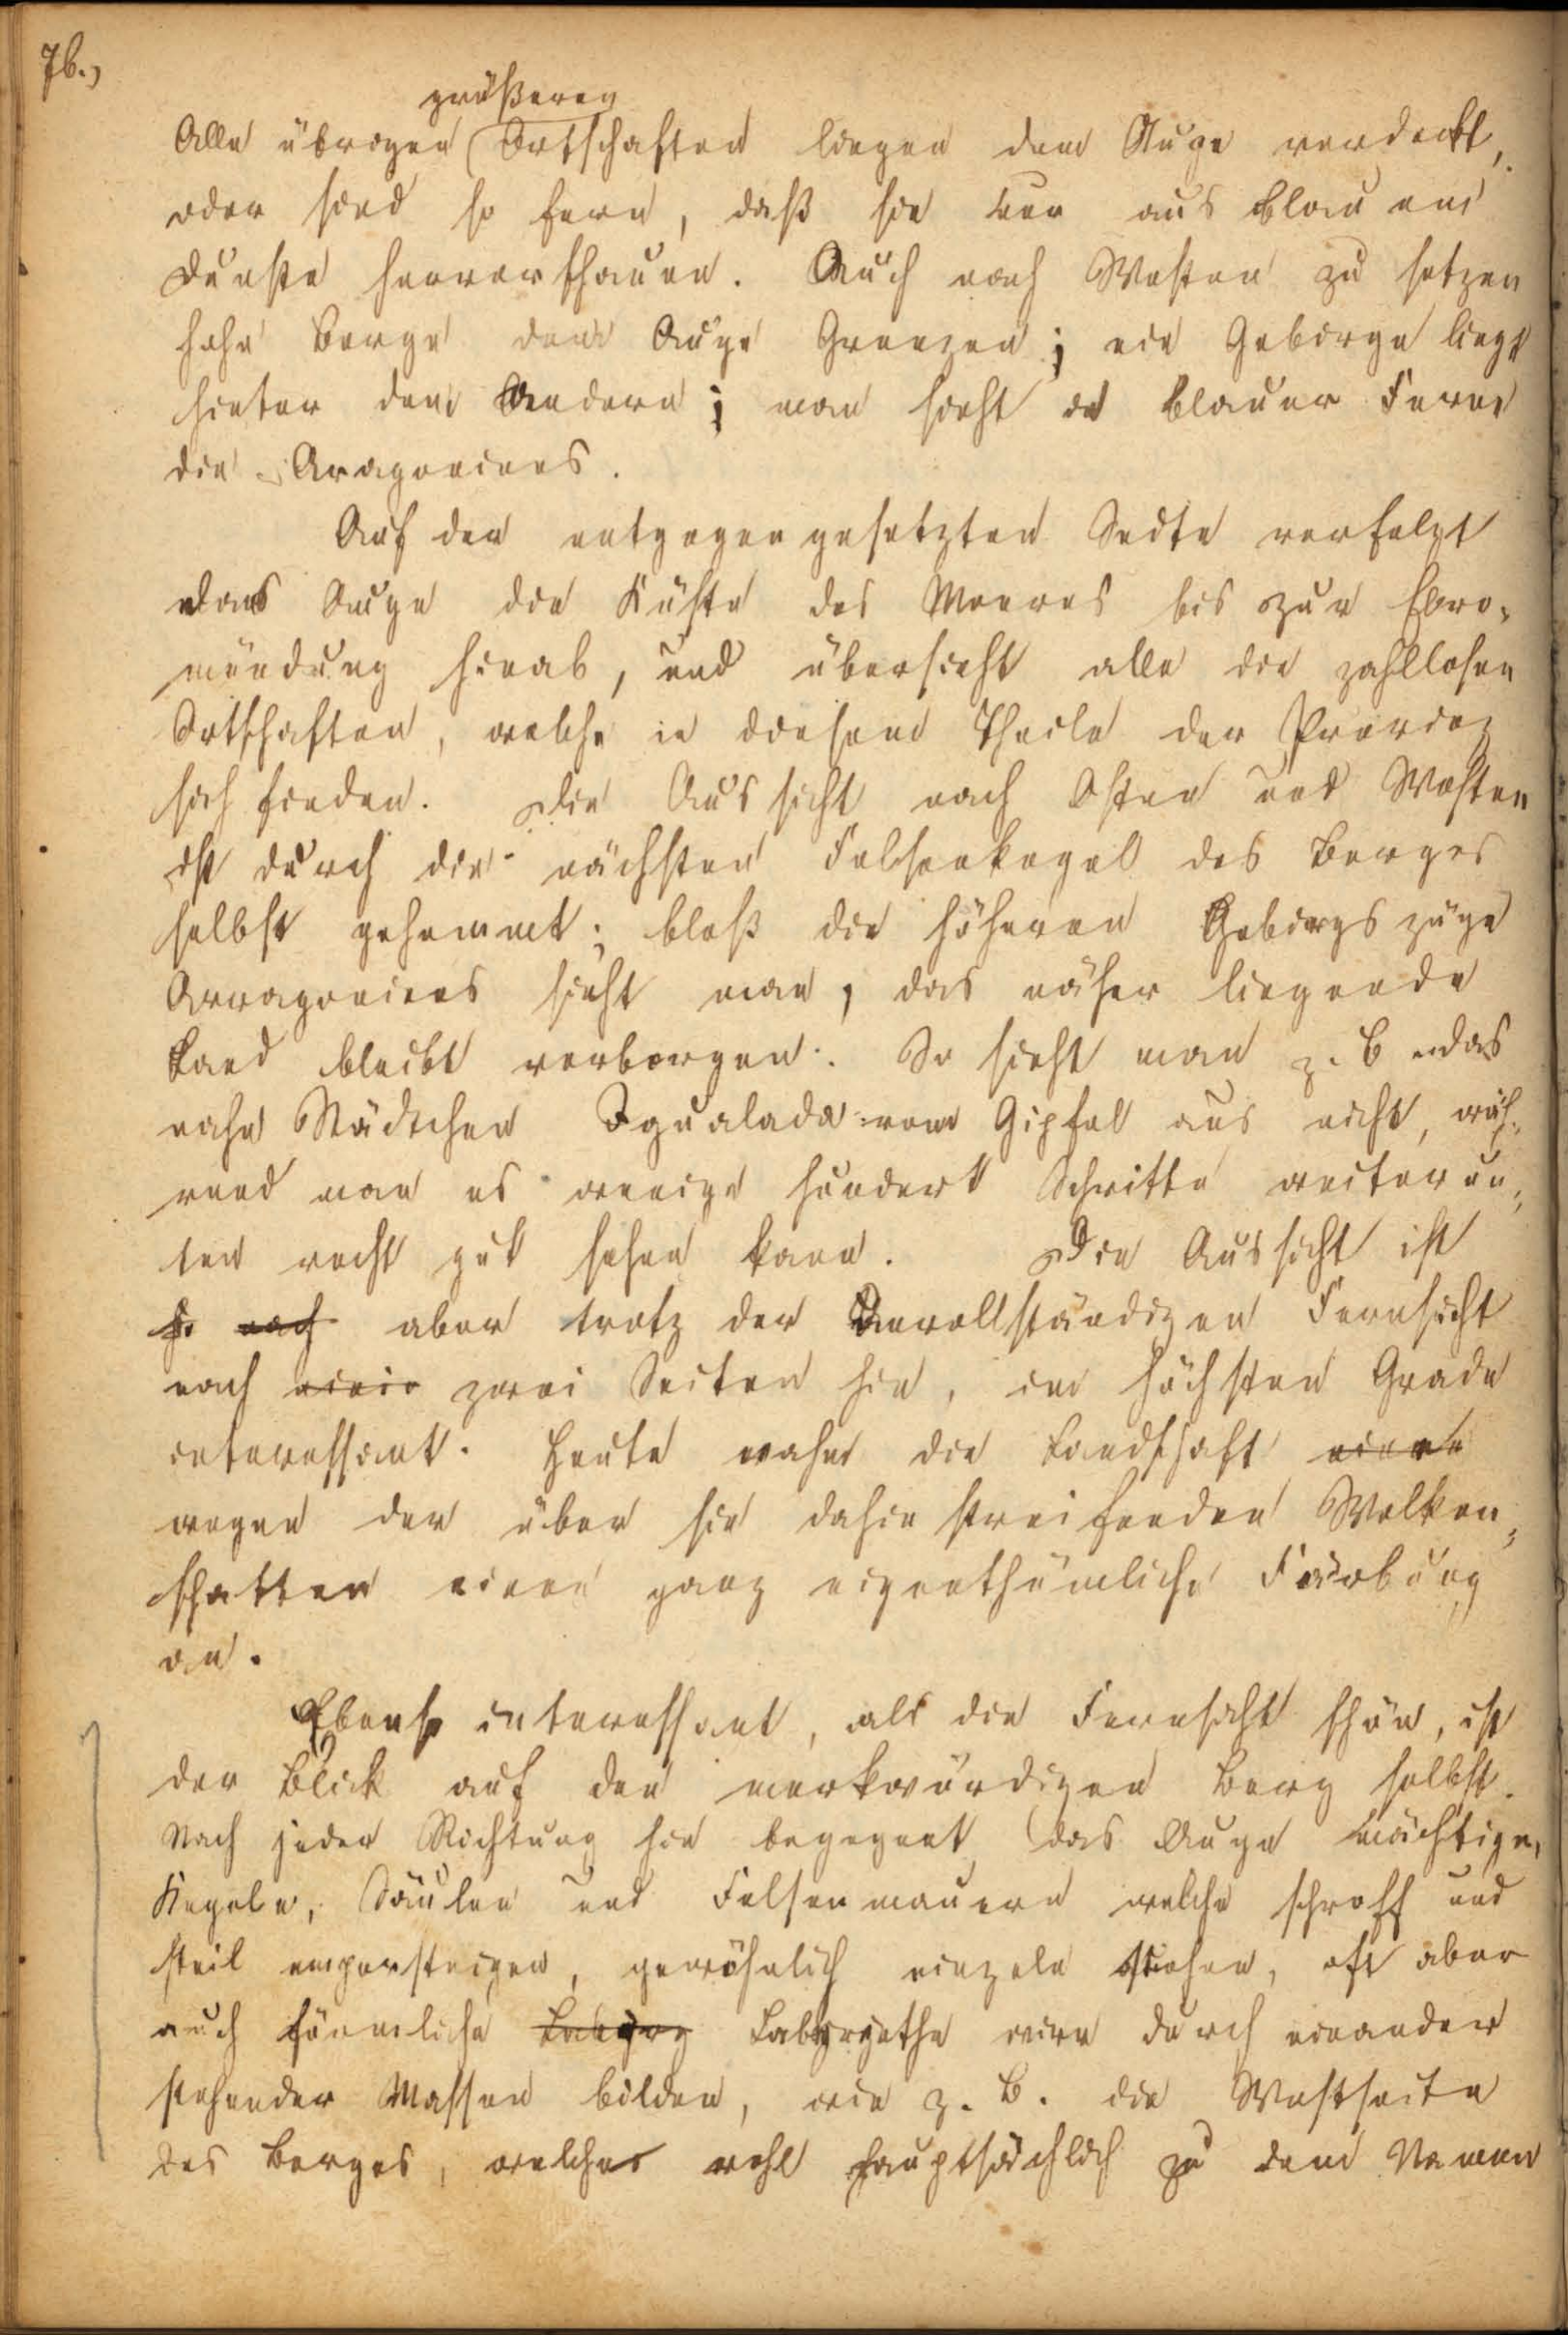 76.,
größeren
Alle übrigen Ortschaften liegen dem Auge verdeckt,
oder sind so fern, daß sie nur aus blauem
Dunste hervorschauen. Auch nach Westen zu setzen
hohe Berge dem Auge Grenzen; ein Gebirge liegt
hinter dem Andern; man sieht in blauer Ferne
die Aragoniens.
Auf der entgegengesetzten Seite verfolgt
das Auge die Küste des Meeres bis zur Ebro-
mündung hinab, und übersieht alle die zahllosen
Ortschaften, welche in diesem Theile der Provinz
sich finden. Die Aussicht nach Osten und Westen
ist durch die nächsten Felsenkegel des Berges
selbst gehemmt; bloß die höheren Gebirgszüge
Arragoniens sieht man, das näher liegende
Land bleibt verborgen. So sieht man z. B das
nahe Städtchen Igualada vom Gipfel aus nicht, wäh-
rend man es wenige hundert Schritte weiter un-
ten recht gut sehen kann. Die Aussicht ist
so nach aber trotz der unvollständigen Fernsicht
nach zwei Seiten hin, im höchsten Grade
interessant. Heute nahm die Landschaft eine
wegen der über sie dahin streifenden Wolken-
schatten eine ganz eigenthümliche Färbung
an.
Ebenso interessant, als die Fernsicht schön, ist
der Blick auf den merkwürdigen Berg selbst.
Nach jeder Richtung hin begegnet das Auge mächtigen,
Kegeln, Säulen und Felsenmauern welche schroff und
steil emporsteigen, gewöhnlich einzeln stehen, oft aber
auch förmliche Labyry Labyrynthe wirr durch einander
stehender Massen bilden, wie z. B. die Westseite
des Berges, welches wohl hauptsächlich zu dem Namen